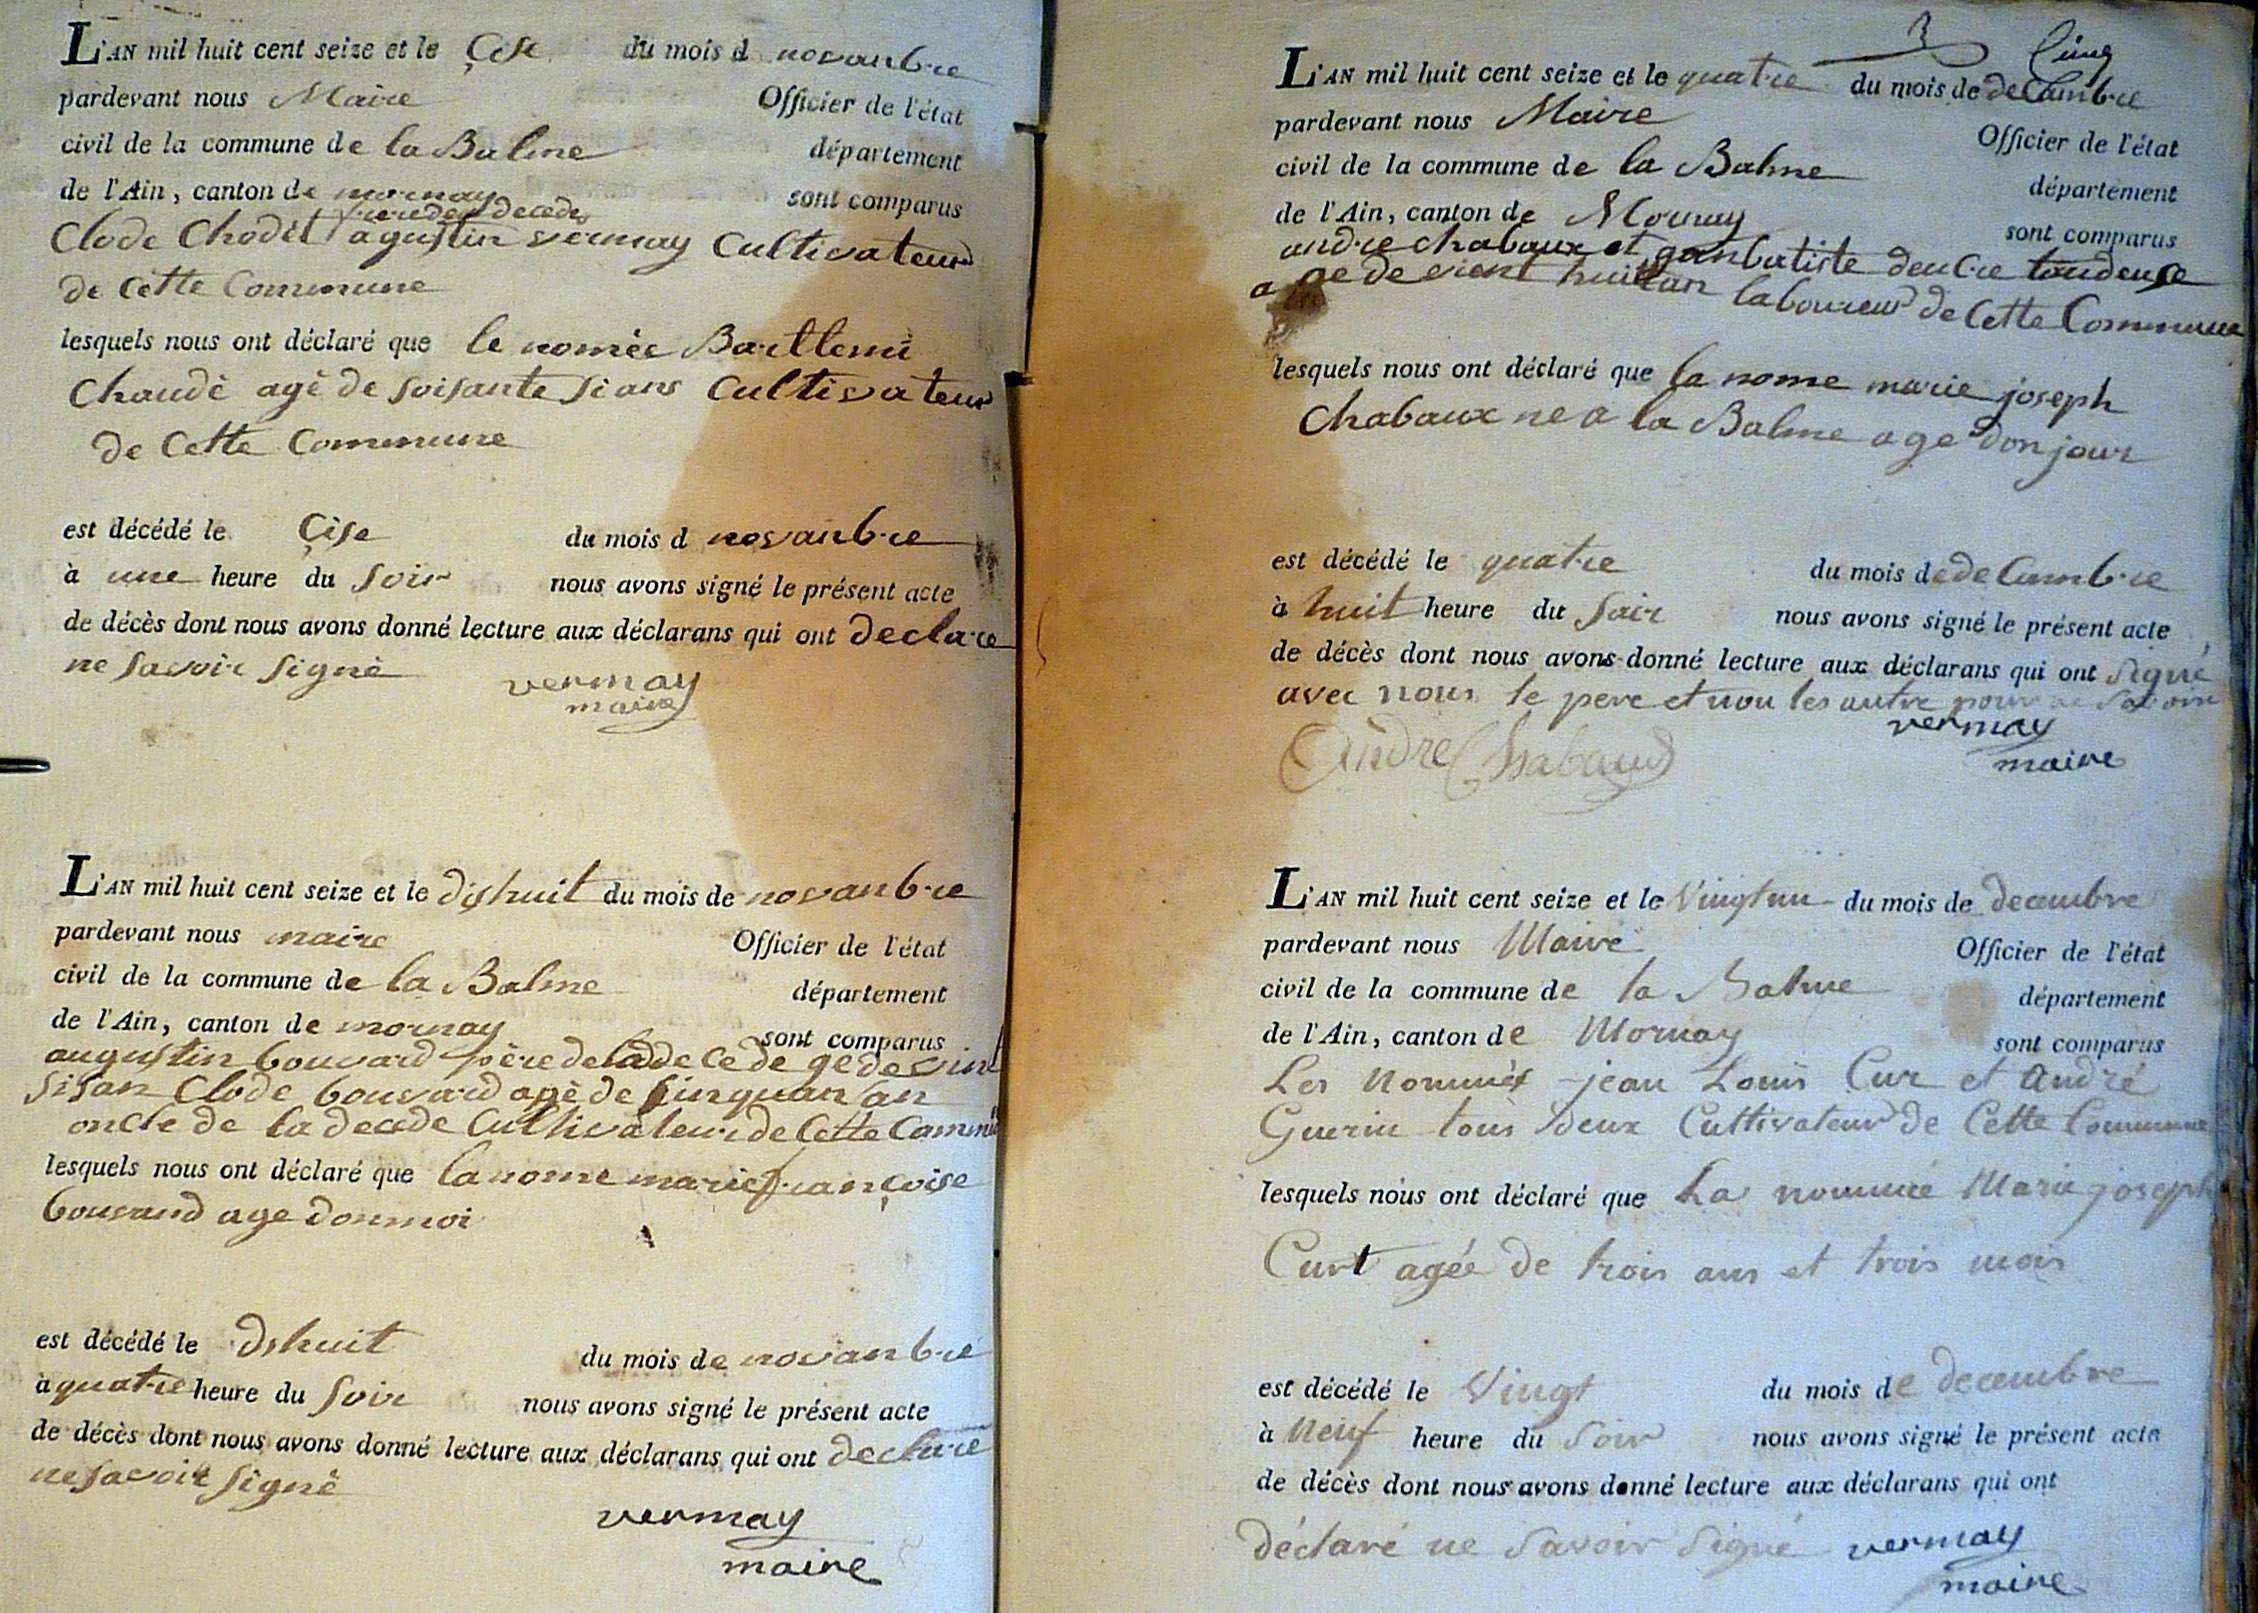 L'AN mil huit cent seize et le Çise du mois d novanbre
pardevant nous Maire Officier de l'état
civil de la commune de la Balme département
de l'Ain, canton de mornay sont comparus
decedes
Clode Chodet agustin vermay Cultivateur
de Cette Commune
lesquels nous ont déclaré que le nomée Bartlemi
Chaudè agè de soisante si ans Cultivateur
de Cette Commune
est décédé le Çise du mois d novanbre
à une heure du soir nous avons signé le présent acte
de décès dont nous avons donné lecture aux déclarans qui ont declare
ne savoir signè
vermay
maire
L'AN mil huit cent seize et le dishuit du mois de novanbre
pardevant nous maire Officier de l'état
civil de la commune de la Balme département
de l'Ain, canton de mornay sont comparus
augustin bouvard père de la decede ge de vint
sisan Clode bouvard agè de sinquan an
oncle de la decede Cultivateur de Cette Commu
lesquels nous ont déclaré que la nome marie françoise
bouvard age donmoi
est décédé le dshuit du mois de novanbre
à quatre heure du soir nous avons signé le présent acte
de décès dont nous avons donné lecture aux déclarans qui ont declare
ne savoir signè
vermay
maire
3 Cinq
L'AN mil huit cent seize et le quatre du mois de deCambre
pardevant nous Maire Officier de l'état
civil de la commune de la Balme département
de l'Ain, canton de Mornay sont comparus
andre chabaux et ganbatiste
a ge de vient huit an laboureur de Cette Commune
lesquels nous ont déclaré que la nome marie joseph
Chabaux ne a la Balme age donjour
est décédé le quatre du mois de deCambre
à huit heure du soir nous avons signé le présent acte
de décès dont nous avons donné lecture aux déclarans qui ont signé
avec nous le pere et non les autre pour ne savoir
vermay
maire
André Chabaud
L'AN mil huit cent seize et le Vingt un du mois de decembre
pardevant nous Maire Officier de l'état
civil de la commune de la Balme département
de l'Ain, canton de Mornay sont comparus
Les Nommés jean Louis Cur et André
Guerin tous deux Cultivateur de Cette Commune
lesquels nous ont déclaré que La nommée Marie joseph
Curt agée de trois ans et trois mois
est décédé le Vingt du mois de decembre
à Neuf heure du soir nous avons signé le présent acte
de décès dont nous avons donné lecture aux déclarans qui ont
déclaré ne savoir signé vermay
maire